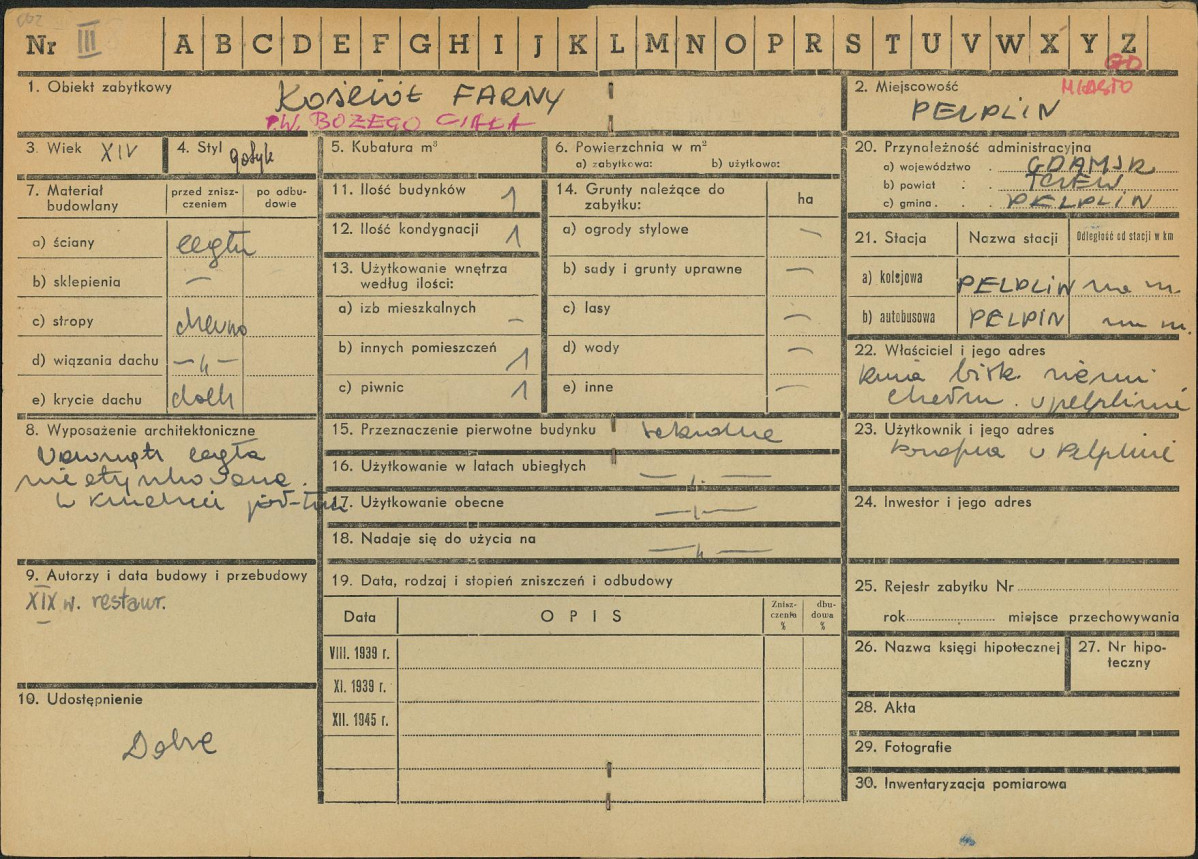 Nr III A B C D E F G H I J K L M N O P R S T U V W X Y Z
GD
1. Obiekt zabytkowy
KOŚCIÓŁ FARNY
P.W. BOŻEGO CIAŁA
2. Miejscowość
MIASTO
PELPLIN
3. Wiek XIV
4. Styl gotyk
5. Kubatura m³
6. Powierzchnia w m²
a) zabytkowa: b) użytkowa:
20. Przynależność administracyjna
a) województwo . GDAŃSK
b) powiat . . TCZEW
c) gmina . . PELPLIN
7. Materiał budowlany
przed znisz-
czeniem
po odbu-
dowie
a) ściany cegła
b) sklepienia —
c) stropy drewno
d) wiązania dachu —„—
e) krycie dachu
11. Ilość budynków 1
12. Ilość kondygnacji 1
13. Użytkowanie wnętrza
według ilości:
a) izb mieszkalnych —
b) innych pomieszczeń 1
c) piwnic 1
14. Grunty należące do
zabytku:
ha
a) ogrody stylowe —
b) sady i grunty uprawne —
c) lasy —
d) wody —
e) inne —
21. Stacja Nazwa stacji Odległość od stacji w km
a) kolejowa PELPLIN na m.
b) autobusowa PELPIN na m.
22. Właściciel i jego adres
w Pelplinie
8. Wyposażenie architektoniczne
Wewnątrz cegła
nietynkowana.
15. Przeznaczenie pierwotne budynku sakralne
16. Użytkowanie w latach ubiegłych —„—
17. Użytkowanie obecne —„—
18. Nadaje się do użycia na —„—
23. Użytkownik i jego adres
parafia w Pelplinie
24. Inwestor i jego adres
9. Autorzy i data budowy i przebudowy
XIX w. restaur.
19. Data, rodzaj i stopień zniszczeń i odbudowy
Data OPIS Znisz-
czenia
%
dbu-
dowa
%
VIII. 1939 r.
XI. 1939 r.
XII. 1945 r.
25. Rejestr zabytku Nr
rok miejsce przechowywania
26. Nazwa księgi hipotecznej
27. Nr hipo-
teczny
10. Udostępnienie
Dobre
28. Akta
29. Fotografie
30. Inwentaryzacja pomiarowa